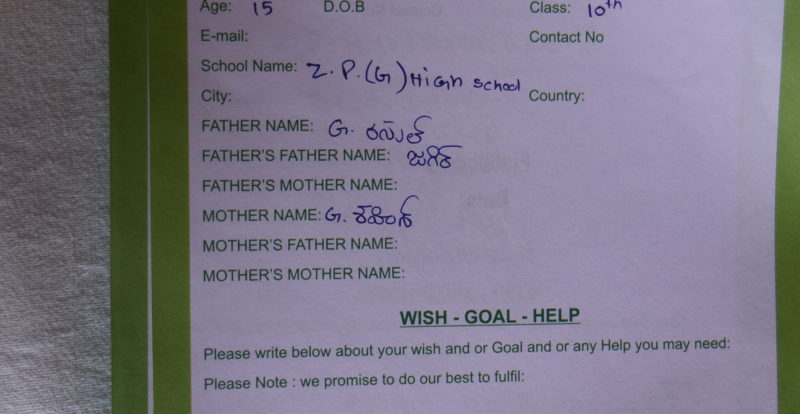 Age: 15 D.O.B Class: 10th
E-mail: Contact No
School Name: Z.P.(G) High school
City: Country:
FATHER NAME: G. రసుల్
FATHER'S FATHER NAME:
FATHER'S MOTHER NAME:
MOTHER NAME: G.
MOTHER'S FATHER NAME:
MOTHER'S MOTHER NAME:
WISH - GOAL - HELP
Please write below about your wish and or Goal and or any Help you may need:
Please Note : we promise to do our best to fulfil: